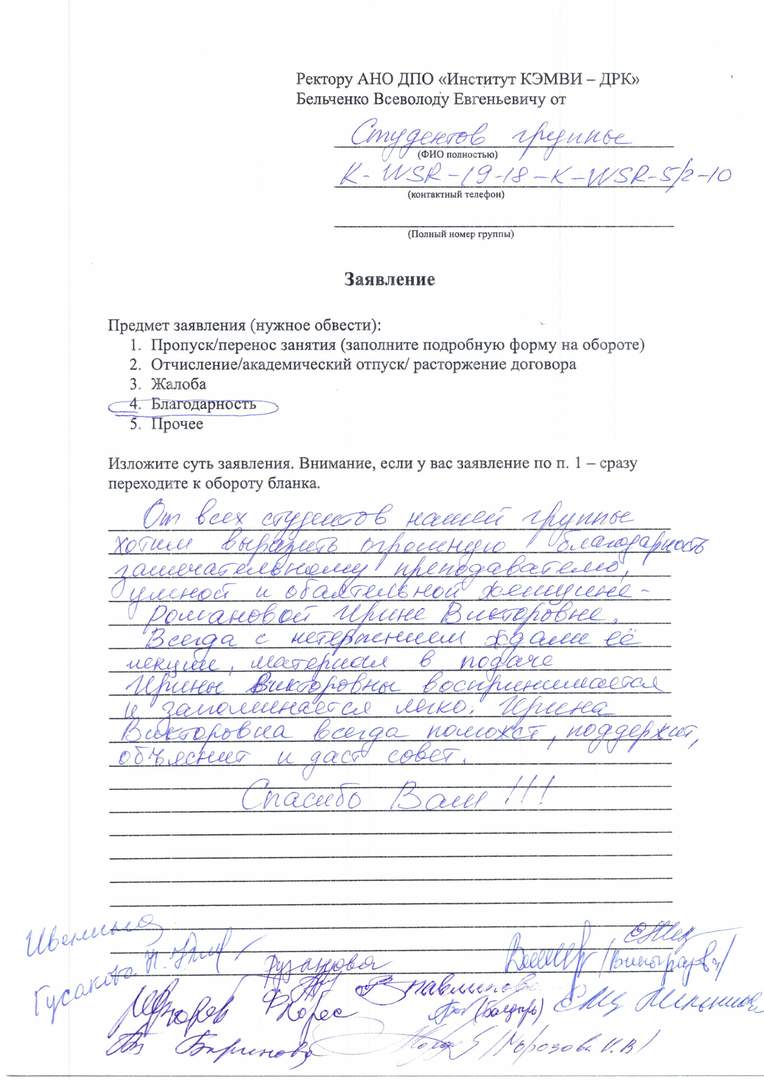 Ректору АНО ДПО «Институт КЭМВИ – ДРК»
Бельченко Всеволоду Евгеньевичу от
Студентов группы
(ФИО полностью)
K-WSR-19-18-K-WSR-5/2-10
(контактный телефон)
(Полный номер группы)
Заявление
Предмет заявления (нужное обвести):
1. Пропуск/перенос занятия (заполните подробную форму на обороте)
2. Отчисление/академический отпуск/ расторжение договора
3. Жалоба
4. Благодарность
5. Прочее
Изложите суть заявления. Внимание, если у вас заявление по п. 1 – сразу
переходите к обороту бланка.
От всех студентов нашей группы
хотим выразить огромную благодарность
замечательному преподавателю,
умной и обаятельной женщине-
Романовой Ирине Викторовне.
Всегда с нетерпением ждали её
лекции, материал в подаче
Ирины Викторовны воспринимается
и запоминается легко. Ирина
Викторовна всегда поможет, поддержит,
объяснит и даст совет.
Спасибо Вам!!!
Ивелина
Гусакова Н.
Рузанова
Павлинова
(Виноградова)
Корес
Баринова
(Морозова К.В)